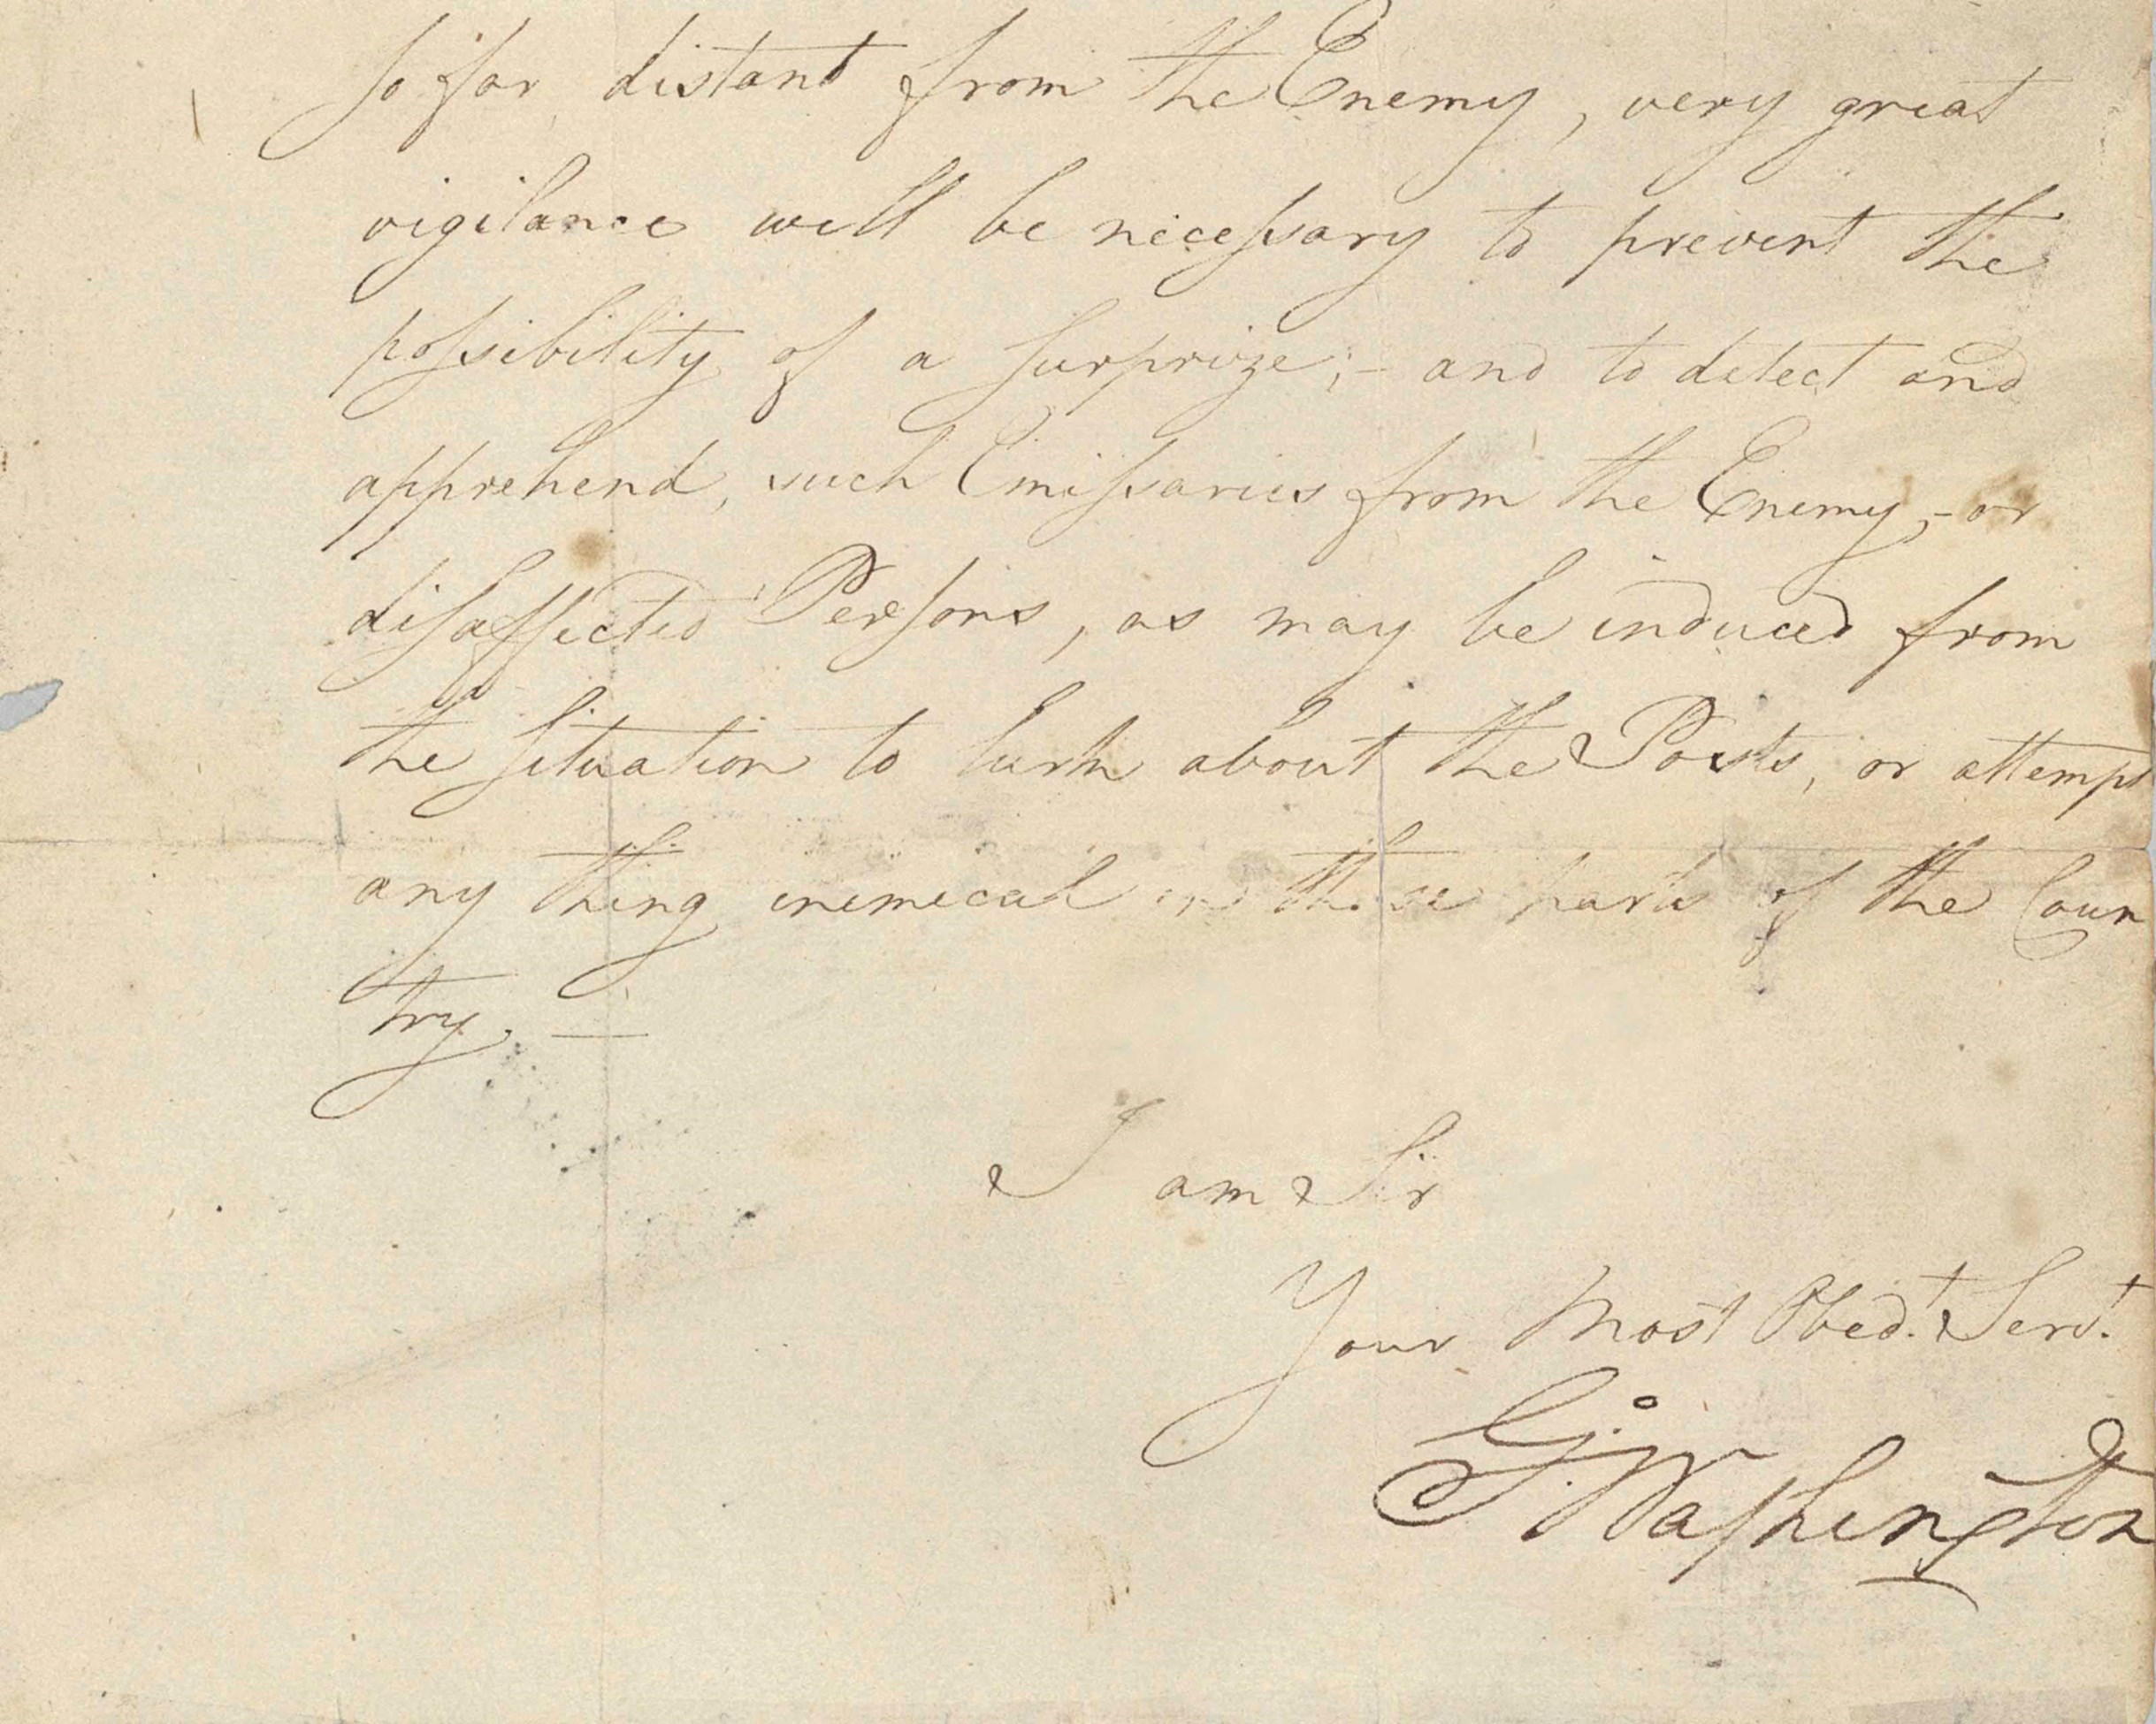 so far distant from the Enemy, very great
vigilance will be necessary to prevent the
possibility of a surprize;- and to detect and
apprehend, such Emissaries from the Enemy,- or
disaffected Persons, as may be induced from
the situation to lurk about the Posts, or attempt
any thing inimical in those parts of the Coun
try. —
I am Sir
Your Most Obed.t Serv.t
G:Washington